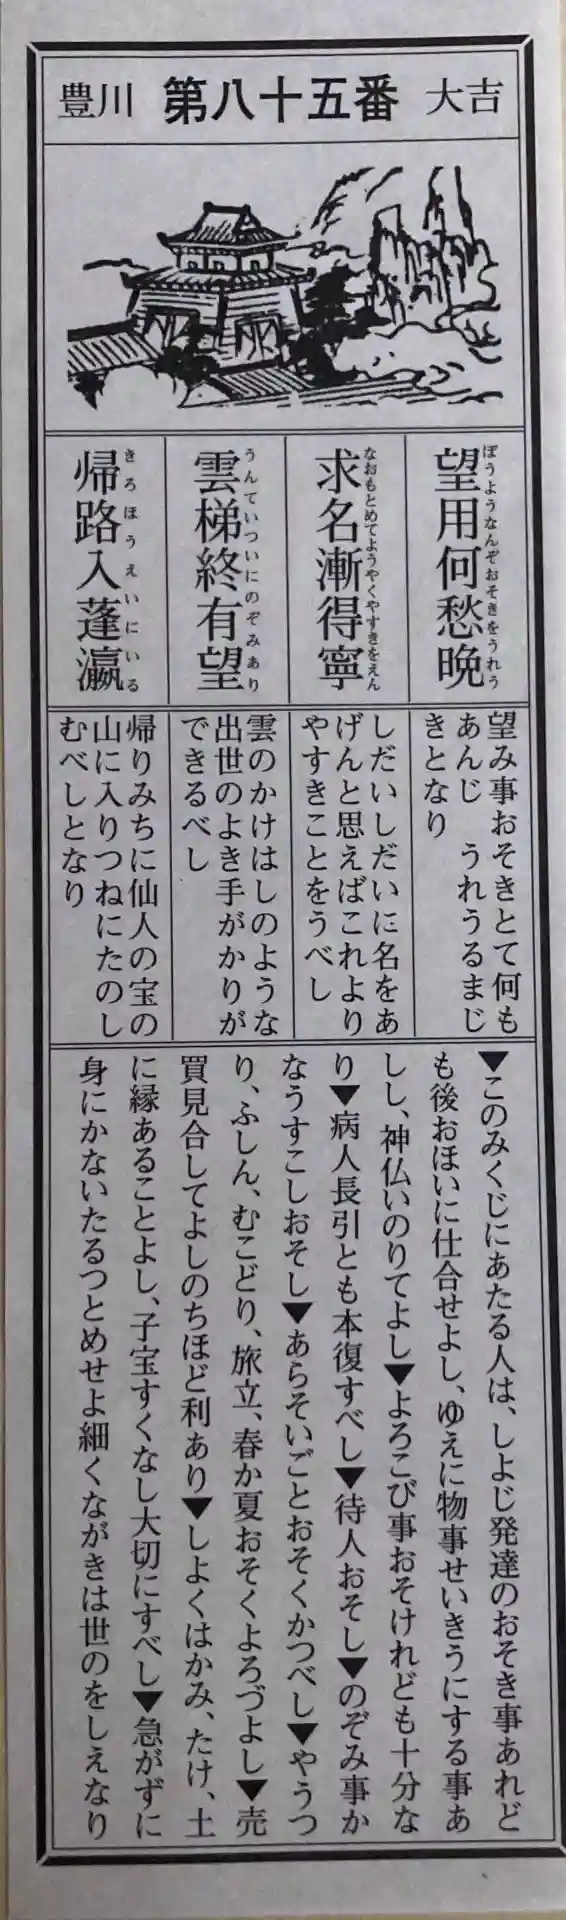 豊川 第八十五番 大吉
ぼうようなんぞおそきをうれう
望用何愁晩
なおもとめてようやくやすきをえん
求名漸得寧
うんていついにのぞみあり
雲梯終有望
きろほうえいにいる
帰路入蓬瀛
望み事おそきとて何も
あんじ うれうるまじ
きとなり
しだいしだいに名をあ
げんと思えばこれより
やすきことをうべし
雲のかけはしのような
出世のよき手がかりが
できるべし
帰りみちに仙人の宝の
山に入りつねにたのし
むべしとなり
▼このみくじにあたる人は、しよじ発達のおそき事あれど
も後おほいに仕合せよし、ゆえに物事せいきうにする事あ
しし、神仏いのりてよし▼よろこび事おそけれども十分な
り▼病人長引とも本復すべし▼待人おそし▼のぞみ事か
なうすこしおそし▼あらそいごとおそくかつべし▼やうつ
り、ふしん、むこどり、旅立、春か夏おそくよろづよし▼売
買見合してよしのちほど利あり▼しよくはかみ、たけ、土
に縁あることよし、子宝すくなし大切にすべし▼急がずに
身にかないたるつとめせよ細くながきは世のをしえなり